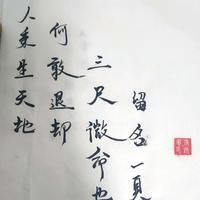 人来生天地
何敢退却
三尺微命也
留名一頁